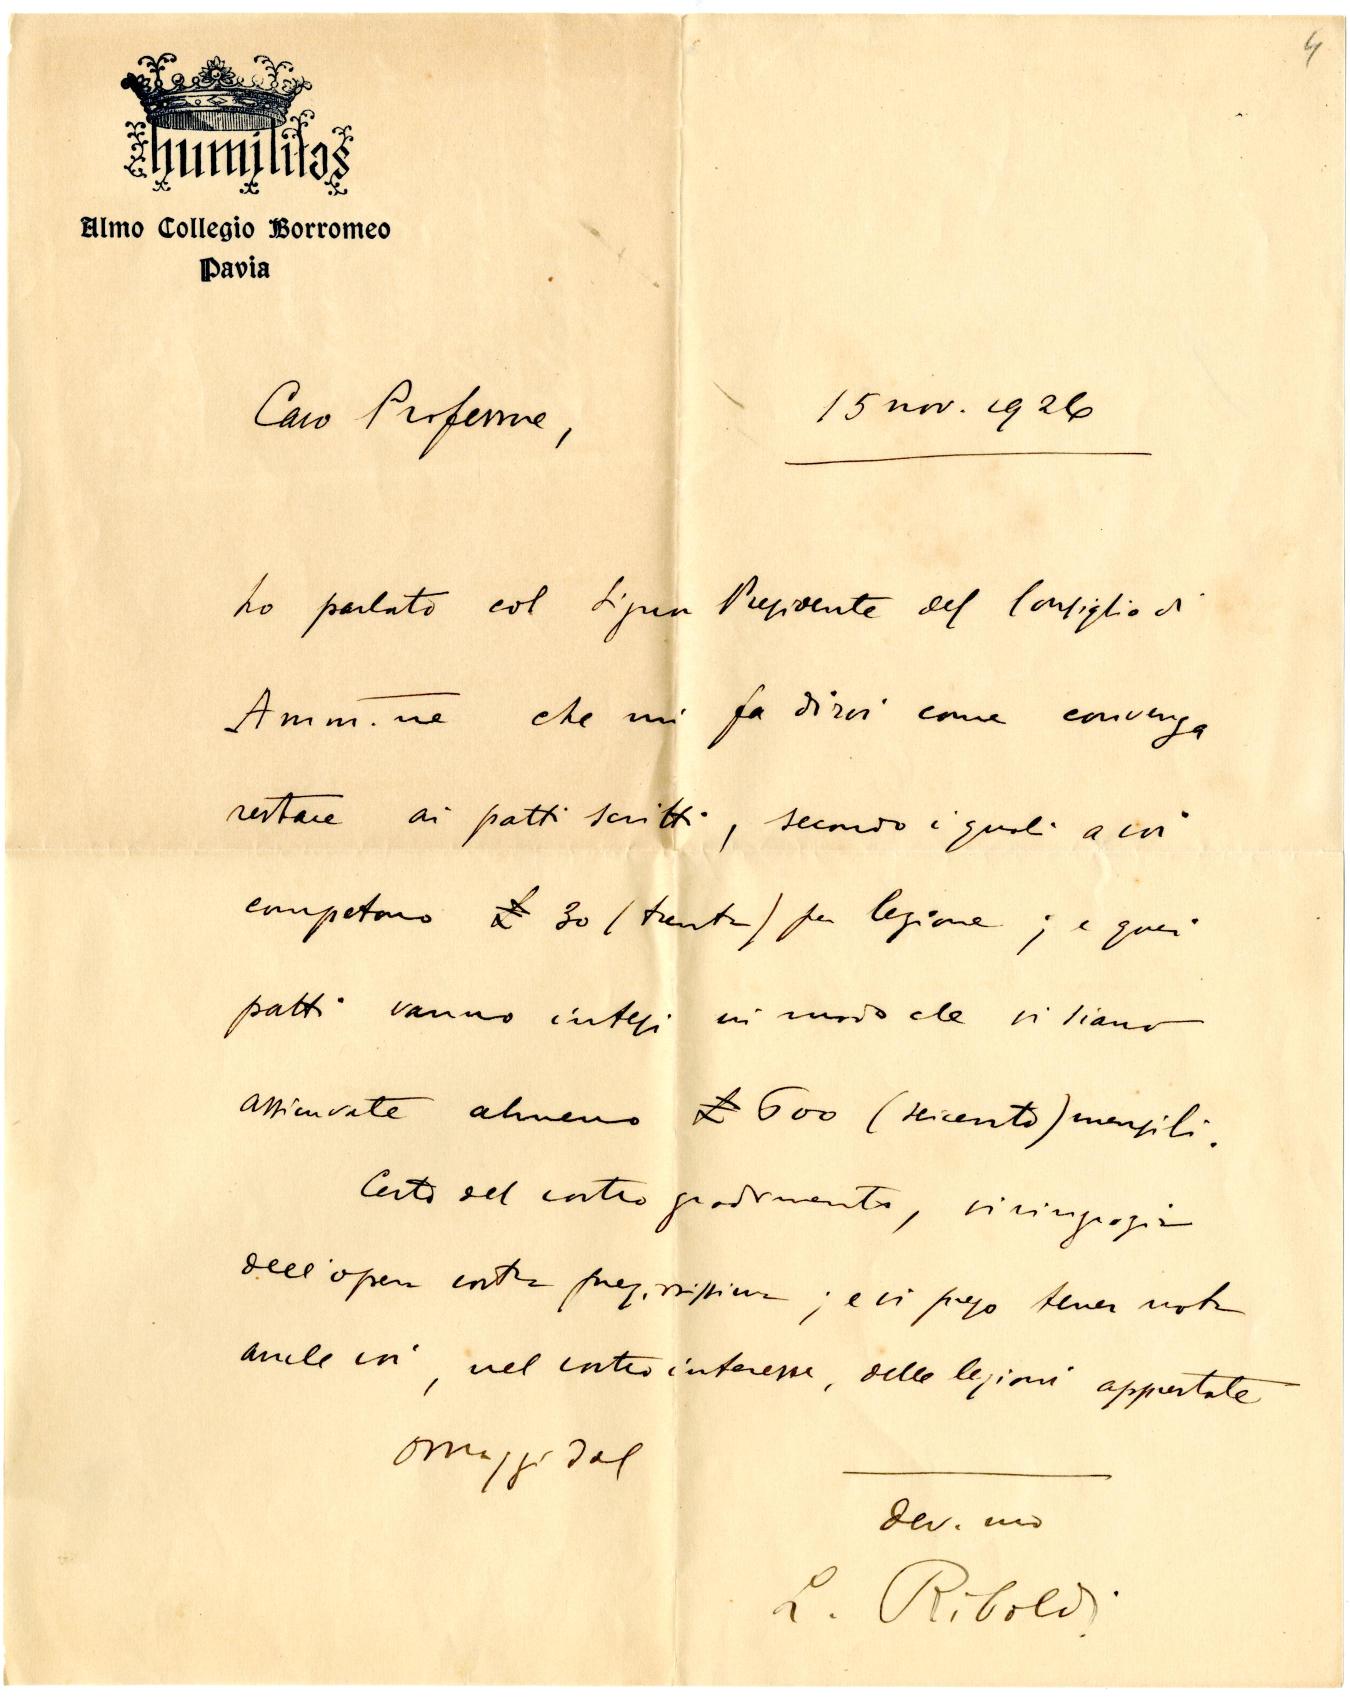 4
humilitas
Almo Collegio Borromeo
Pavia
Caro Professore,
15 nov. 1926
ho parlato col Signor Presidente del Consiglio di
Amm.ne che mi fa dirvi come convenga
restare ai patti scritti, secondo i quali a voi
competono £ 30 (trenta) per lezione; e quei
patti vanno intesi in modo che vi siano
assicurate almeno £ 600 (seicento) mensili.
Certo del vostro gradimento, vi ringrazio
dell'opera vostra pregevolissima; e vi prego tener nota
anche voi, nel vostro interesse, delle lezioni apportate
Omaggi dal
dev.mo
L. Riboldi